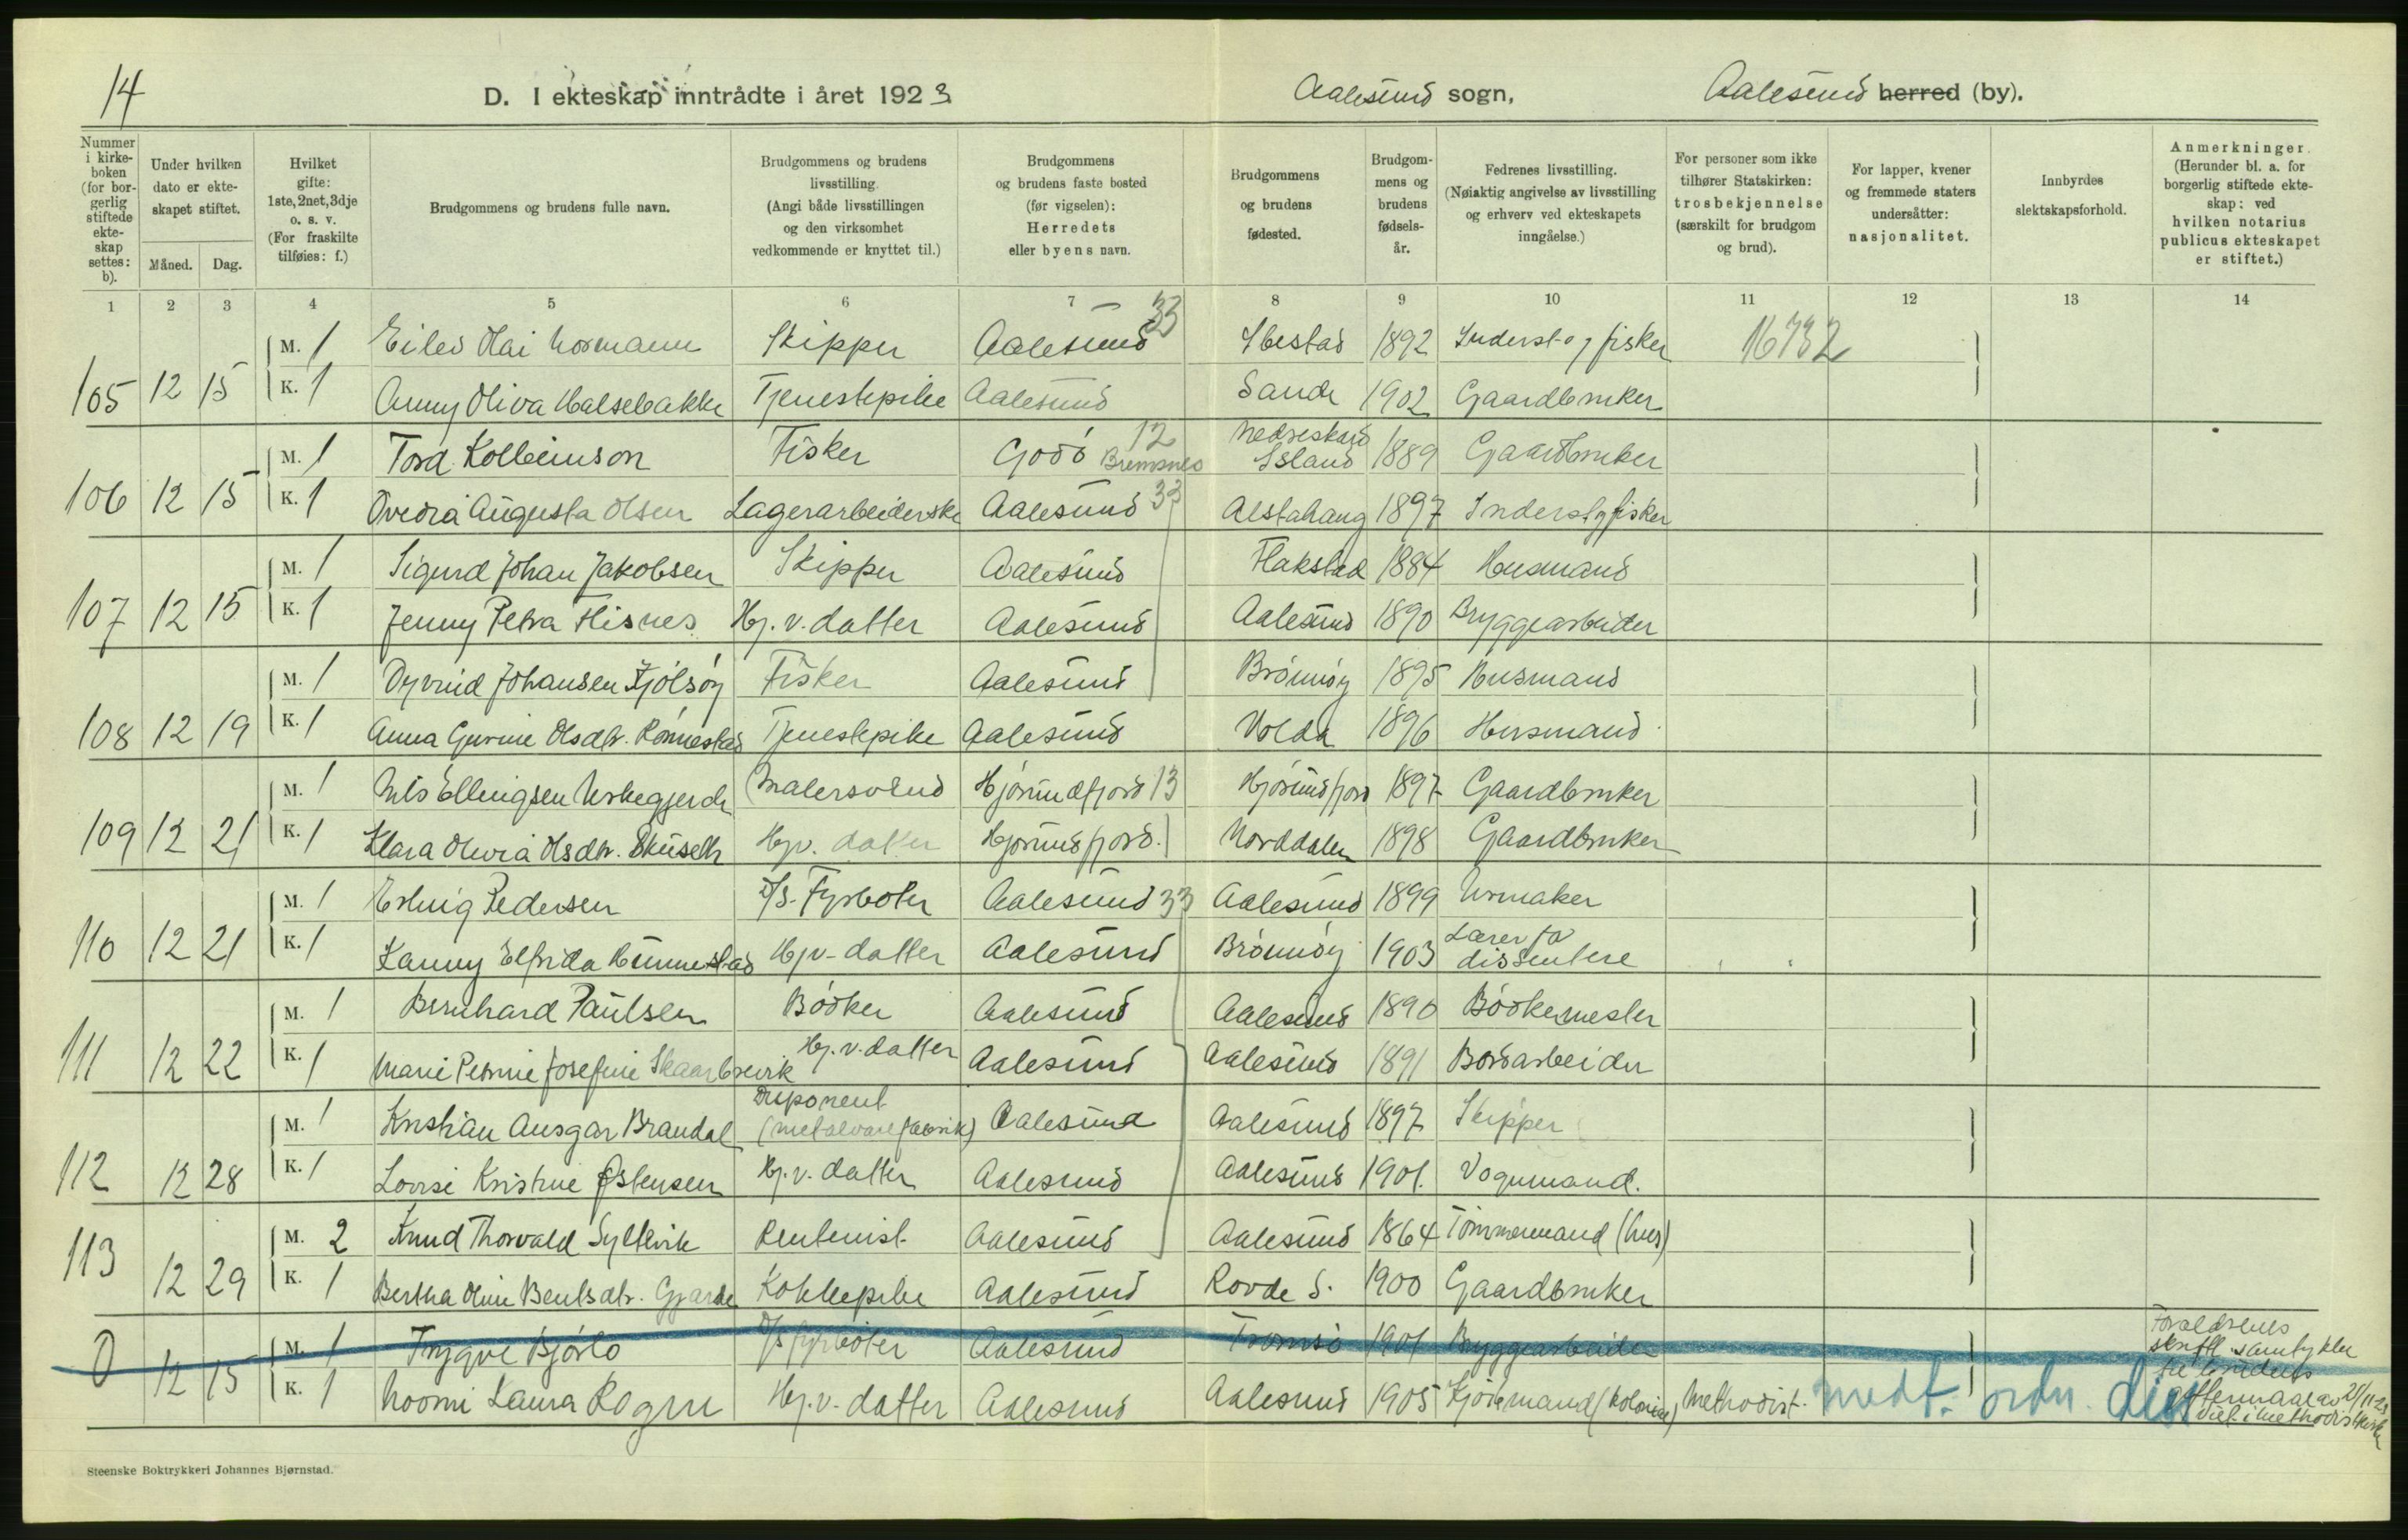 14
D. I ekteskap inntrådte i året 1923
Aalesund sogn,
Aalesund herred (by).
Nummer i kirkeboken (for borgerlig stiftede ekteskap settes: b).
Under hvilken dato er ekteskapet stiftet.
Måned. Dag.
Hvilket gifte: 1ste, 2net, 3dje o. s. v. (For fraskilte tilføies: f.)
Brudgommens og brudens fulle navn.
Brudgommens og brudens livsstilling. (Angi både livsstillingen og den virksomhet vedkommende er knyttet til.)
Brudgommens og brudens faste bosted (før vigselen): Herredets eller byens navn.
Brudgommens og brudens fødested.
Brudgommens og brudens fødselsår.
Fedrenes livsstilling. (Nøiaktig angivelse av livsstilling og erhverv ved ekteskapets inngåelse.)
For personer som ikke tilhører Statskirken: trosbekjennelse (særskilt for brudgom og brud).
For lapper, kvener og fremmede staters undersåtter: nasjonalitet.
Innbyrdes slektskapsforhold.
Anmerkninger. (Herunder bl. a. for borgerlig stiftede ekteskap: ved hvilken notarius publicus ekteskapet er stiftet.)
1 2 3 4 5 6 7 8 9 10 11 12 13 14
M. 1 Eilev Olai Normann Skipper Aalesund 33 Ibestad 1892 Inderst og fisker 16732
105 12 15 K. 1 Anny Oliva Halsebakke Tjenestepike Aalesund Sande 1902 Gaardbruker
M. 1 Tord Kolbeinson Fisker Godö 12 Bremsnes Nedreskard Island 1889 Gaardbruker
106 12 15 K. 1 Ovedia Augusta Olsen Lagerarbeiderske Aalesund 33 Alstahaug 1897 Inderst og fisker
M. 1 Sigurd Johan Jakobsen Skipper Aalesund Flakstad 1884 Husmand
107 12 15 K. 1 Jenny Petra Flisnes Hj. v. datter Aalesund Aalesund 1890 Bryggearbeider
M. 1 Oyvind Johansen Tjölsöy Fisker Aalesund Brönnöy 1895 Husmand
108 12 19 K. 1 Anna Gurine Olsdtr. Rönnestad Tjenestepike Aalesund Volda 1896 Husmand
M. 1 Nils Ellingsen Urkegjerde Malersvend Hjörundfjord 13 Hjörundfjord 1897 Gaardbruker
109 12 21 K. 1 Klara Olivia Olsdtr. Hjv. datter Hjörundfjord. Norddalen 1898 Gaardbruker
M. 1 Erling Pedersen D/S. Fyrböter Aalesund 33 Aalesund 1899 Urmaker
110 12 21 K. 1 Fanny Elfrida Hjv- datter Aalesund Brönnöy 1903 Lærer for dissentere
M. 1 Bernhard Paulsen Bödker Aalesund Aalesund 1890 Bödkermester
111 12 22 K. 1 Marie Petrine Josefine Skaarbrevik Hj. v. datter Aalesund Aalesund 1891 Bordarbeider
M. 1 Kristian Ansgar Brandal Disponent (metalvarefabrik) Aalesund Aalesund 1897 Skipper
112 12 28 K. 1 Lovise Kristine Østensen Hj. v. datter Aalesund Aalesund 1901. Vognmand.
M. 2 Knud Thorvald Syltevik Rentenist Aalesund Aalesund 1864 Tömmermand (hus)
113 12 29 K. 1 Bertha Oline Bentsdtr. Gjærde Kokkepike Aalesund Rovde S. 1900 Gaardbruker
M. 1 Trygve Bjørlo D/S fyrböter Aalesund Tromsö 1901 Bryggearbeider
0 12 15 K. 1 Noomi Laura Rogne Hj. v. datter Aalesund Aalesund 1905 Kjöbmand (kolonial) Methodist. medt. ordn. diss
Forældrenes
skriftl. samtykke
til brudens
egtemaal av 21/11 23
Viet i methodistkirke
Steenske Boktrykkeri Johannes Bjørnstad.